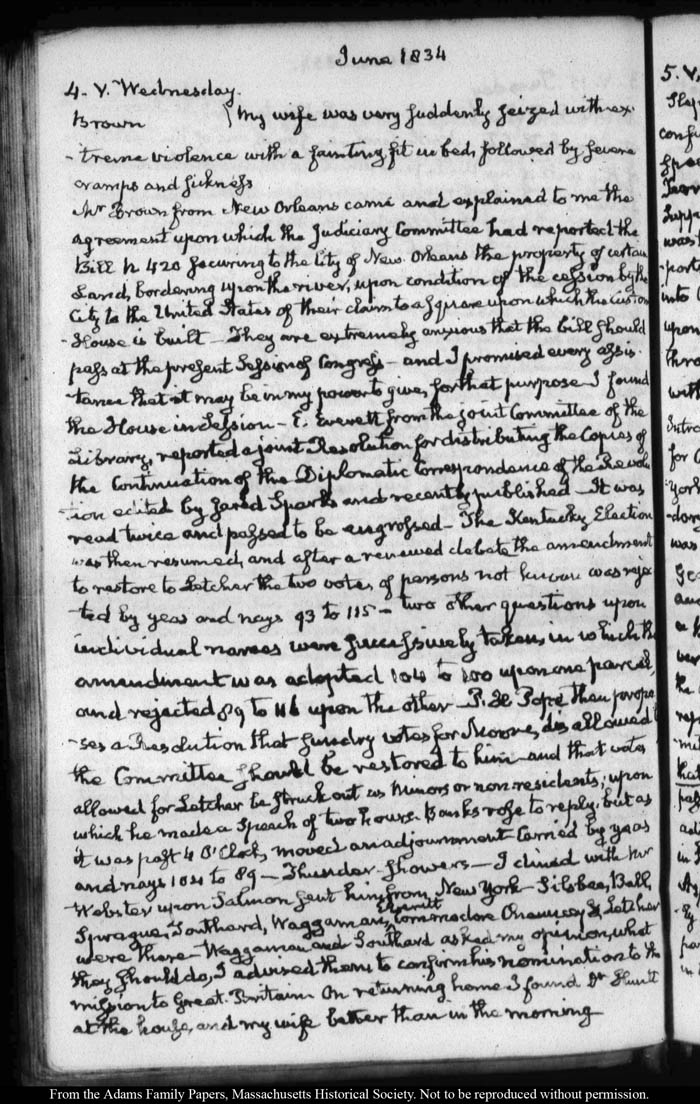 June 1834
4. V. Wednesday.
Brown } My wife was very suddenly seized with ex-
-treme violence with a fainting fit in bed, followed by severe
cramps and sickness
Mr Brown from New Orleans came and explained to me the
agreement upon which the Judiciary Committee had reported the
Bill h 420 securing to the City of New Orleans the property of certain
Land, bordering upon the river, upon condition of the cession by the
City to the United States of their claim to a square upon which the custom
-House is built — They are extremely anxious that the bill should
pass at the present Session of Congress — and I promised every assis-
-tance that it may be in my power to give, for that purpose I found
the House in Session — E. Everett from the joint Committee of the
Library, reported a joint Resolution for distributing the Copies of
the Continuation of the Diplomatic Correspondence of the Revolu
-tion edited by Jared Sparks and recently published — It was
read twice and passed to be engrossed — The Kentucky Election
was then resumed, and after a renewed debate the amendment
to restore to Letcher the two votes, of persons not known was rejec
-ted by yeas and nays 93 to 115 — two other questions upon
individual names were successively taken, in which the
amendment was adopted 104 to 100 upon one parcel,
and rejected 89 to 116 upon the other — P. H. Pope, then propo
-ses a Resolution that sundry votes for Moore, disallowed
the Committee should be restored to him — and that votes
allowed for Letcher be struck out as minors or non-residents; upon
which he made a Speech of two hours. Banks rose to reply; but as
it was past 4 O'Clock, moved an adjournment Carried by yeas
and nays 104 to 89 — Thunder-showers — I dined with Mr
Webster upon Salmon sent him from New York — Silsbee, Bell,
Sprague, Southard, Waggaman, Commodore Chauncey & Letcher
were there — Waggaman and Southard asked my opinion, what
they should do, I advised them to confirm his nomination to the
mission to Great-Britain. On returning home I found Dr Huntt
at the house, and my wife better than in the morning
5. V.
From the Adams Family Papers, Massachusetts Historical Society. Not to be reproduced without permission.